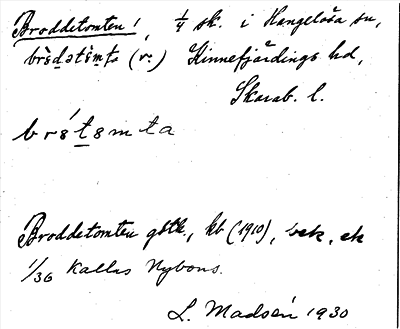 Broddetomten!, 1/4 sk. i Hangelösa sn,
brɞ̀d̠ətɞ̀m̥ta (v.) Kinnefjärdings hd,
Skarab. l.
brɞ́t̠ɞmta
Broddetomten gstl., kb (1910), bek, ek
1/36 kallas Nybons.
L. Madsén 1930